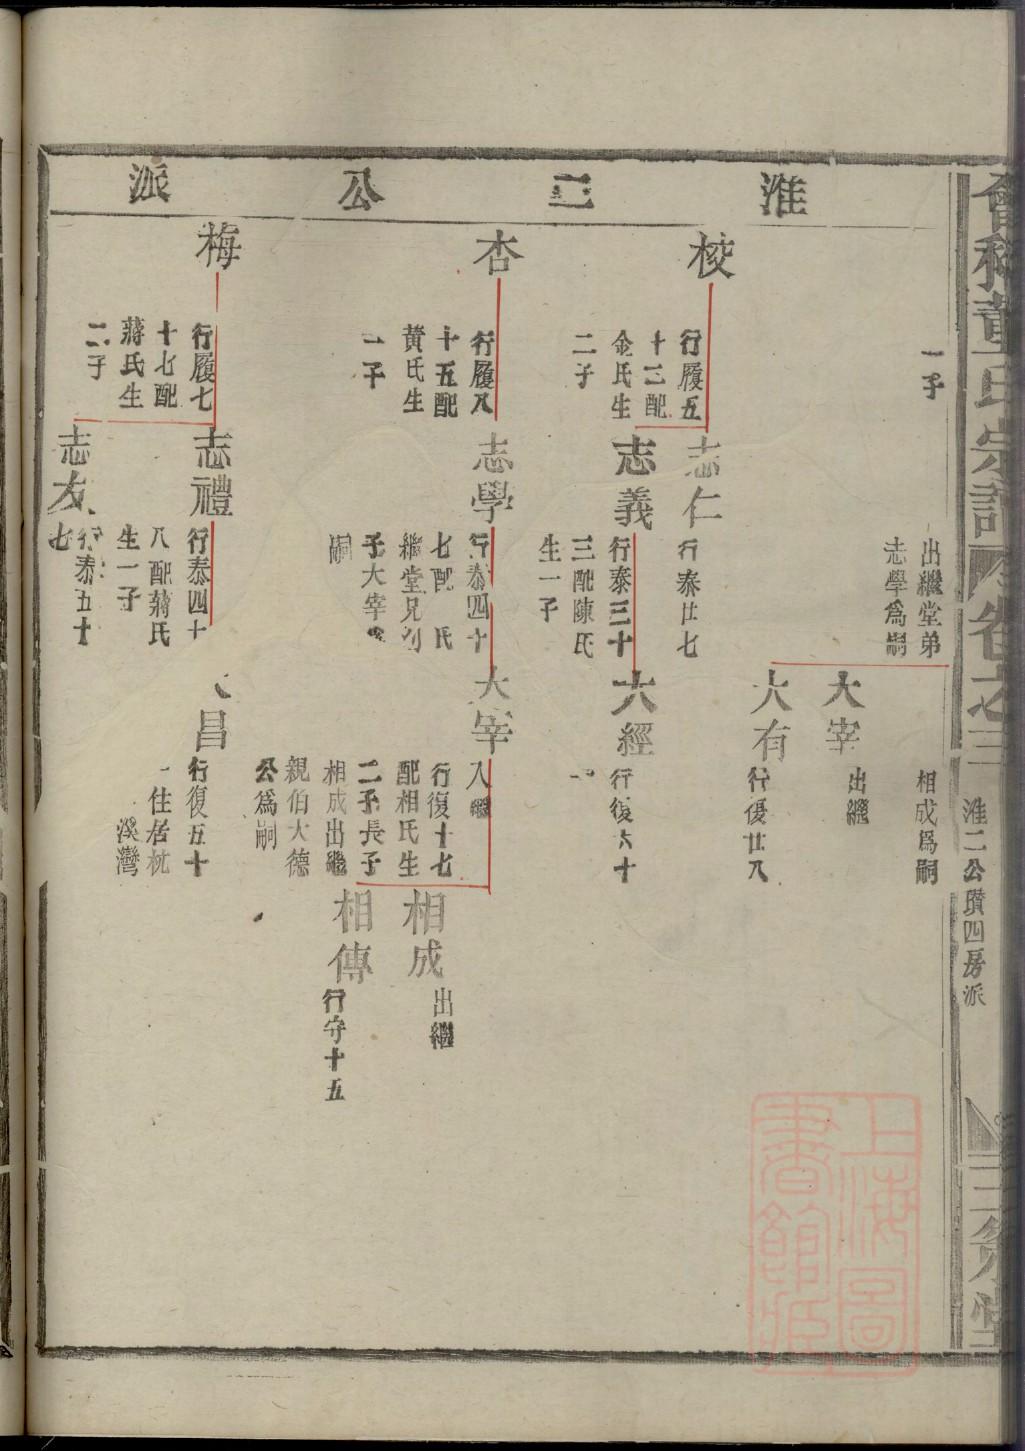 會稽董氏宗譜
卷之三
淮二公瓚四房派
三策堂
淮二公派
一子
出繼堂弟
志學爲嗣
相成爲嗣
大宰
出繼
大有
行復廿八
校
行履五
十三配
金氏生
二子
志仁
行泰廿七
志義
行泰三十
三配陳氏
生一子
大經
行復六十
一
杏
行履八
十五配
黄氏生
一子
志學
行泰四十
七配 氏
繼堂兄
子大宰爲
嗣
大宰
入繼
行復十七
配相氏生
二子長子
相成出繼
親伯大德
公爲嗣
相成
出繼
相傳
行守十五
梅
行履七
十七配
蔣氏生
二子
志禮
行泰四十
八配蔣氏
生一子
昌
行復五十
一住居枕
溪灣
志友
行泰五十
七
上海圖
書館藏